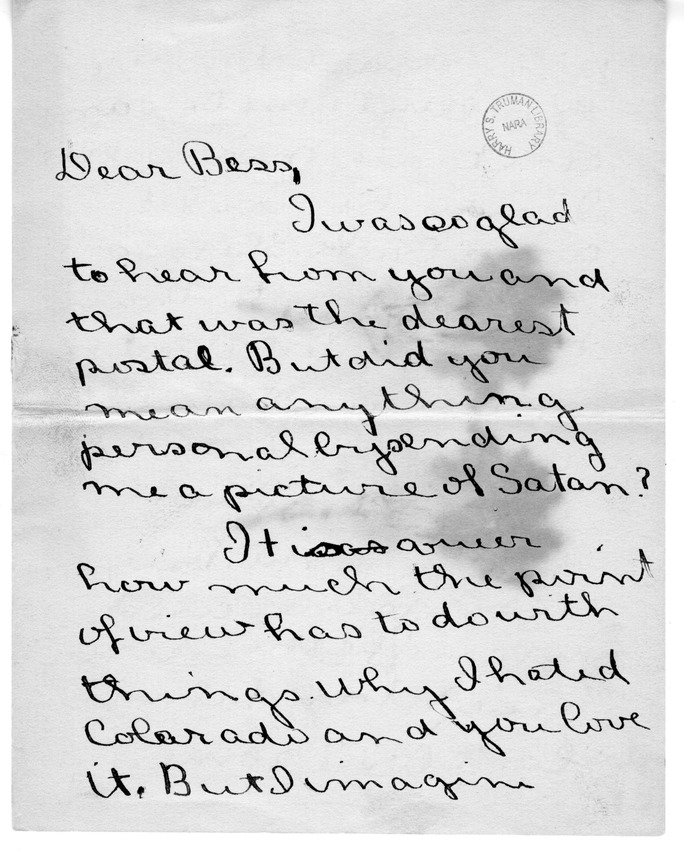 HARRY S. TRUMAN LIBRARY
NARA
Dear Bess,
I was so glad
to hear from you and
that was the dearest
postal. But did you
mean anything
personal by sending
me a picture of Satan?
It is queer
how much the point
of view has to do with
things. Why I hated
Colorado and you love
it. But I imagine